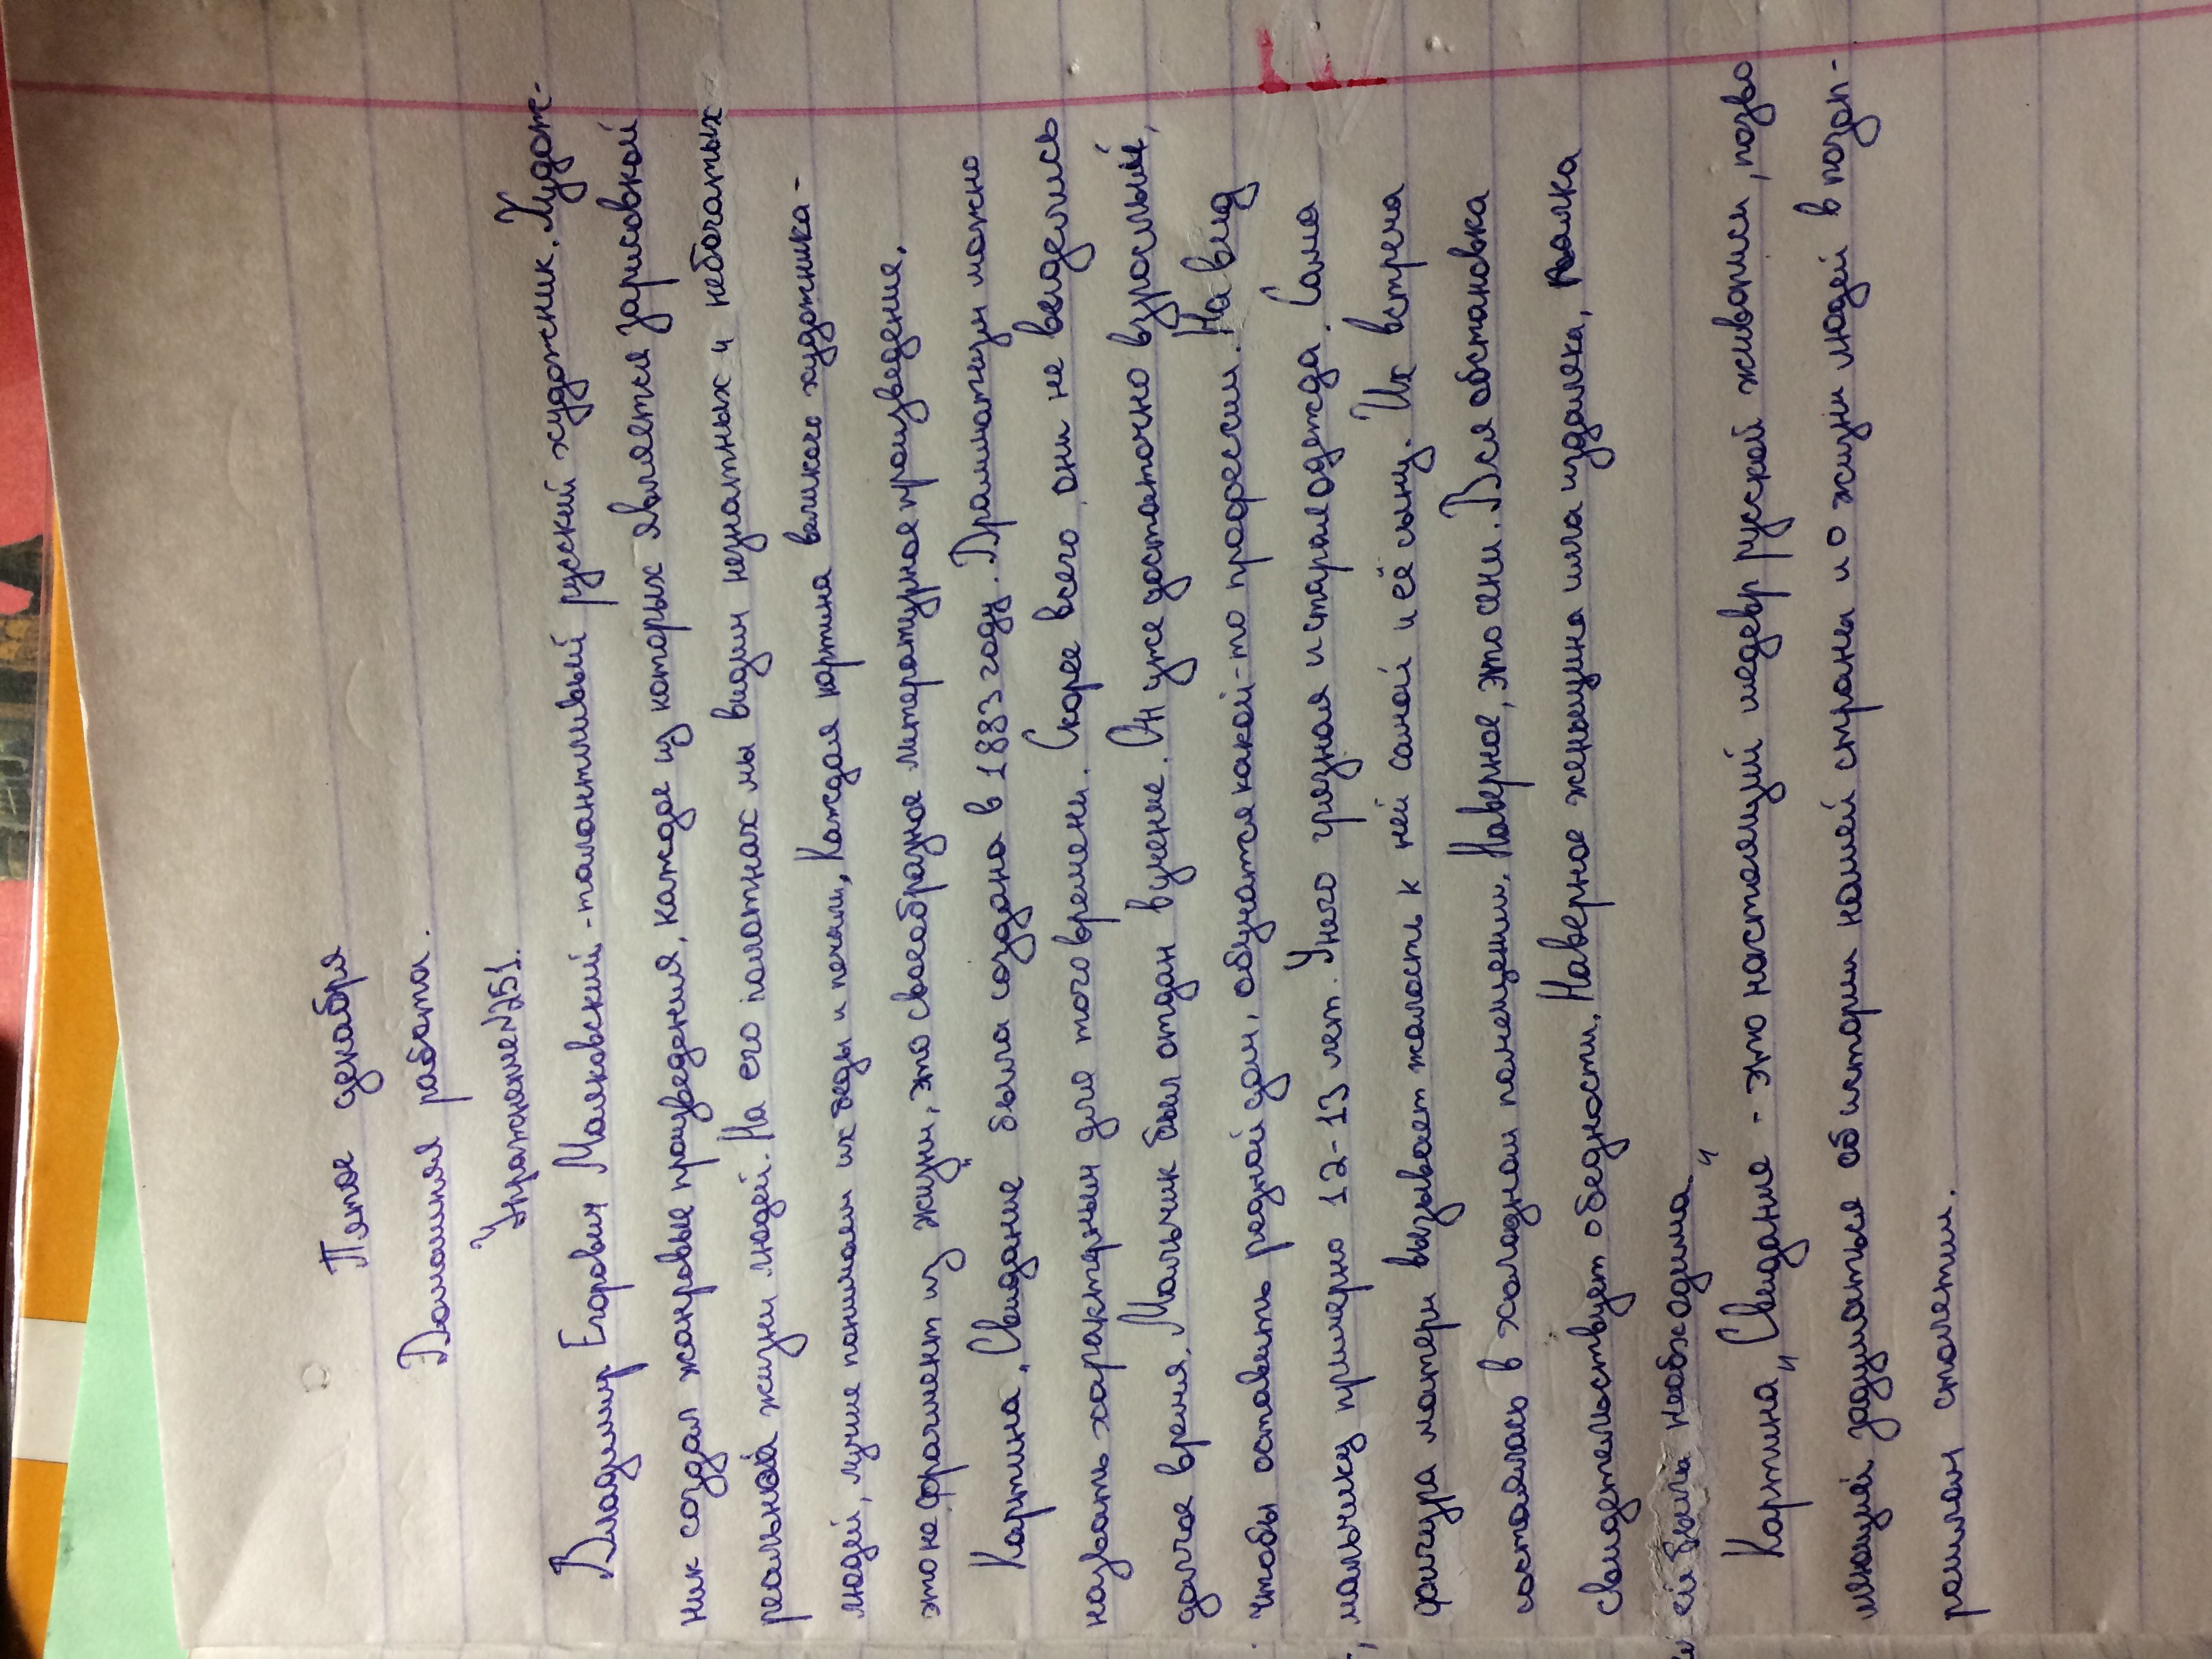 Пятое декабря
Домашняя работа.
Упражнение№251.
Владимир Егорович Маяковский -талантливый руский художник. Худож-
ник создал жанровые произведения, каждое из которых является зарисовкой
реальной жизни людей. На его полотнах мы видим незнатных и небогатых
людей, лучше понимаем их беды и печали, Каждая картина великого художника-
это не фрагмент из жизни, это своеобразное литературное произведение.
Картина „Свидание" была создана в 1883 году. Драматизм можно
назвать характерным для того времени. Скорее всего, они не виделись
долгое время. Мальчик был отдан в учение. Он уже достаточно взрослый,
чтобы оставить родной дом, обучатся какой-то профессии. На вид
мальчику примерно 12-13 лет. У него грязная и старая одежда. Сама
фигура матери вызывает жалость к ней самой и её сыну. Их встреча
состоялась в холодном помещении. Наверное, это сени. Вся обстановка
свидетельствует о бедности. Наверное женьщина шла издалека, палка
ей была необходима.
Картина „Свидание" - это настоящий шедевр руской живописи, позво
ляющий задуматься об истории нашей страны и о жизни людей в поза-
рошлом столетии.